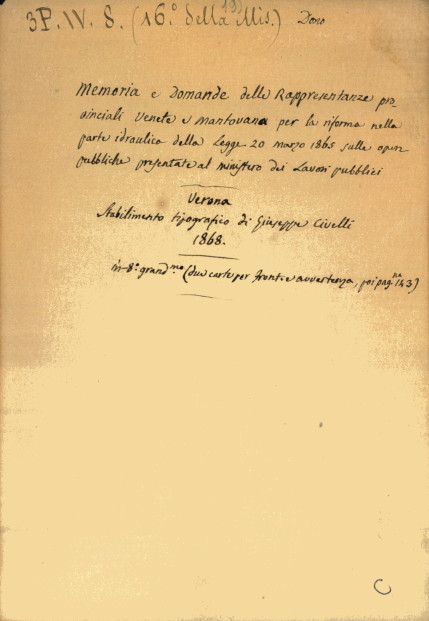 3P. IV. 8. (16.° della 19ª Mis.) Dono
Memoria e Domande delle Rappresentanze pro-
vinciali Venete e Mantovana per la riforma nella
parte idraulica della Legge 20 marzo 1865 sulle opere
pubbliche presentate al ministero dei Lavori pubblici
Verona
Stabilimento tipografico di Giuseppe Civelli
1868.
in-8° grand.mo (due carte per front. e avvertenza, poi pag.ne 143)
C